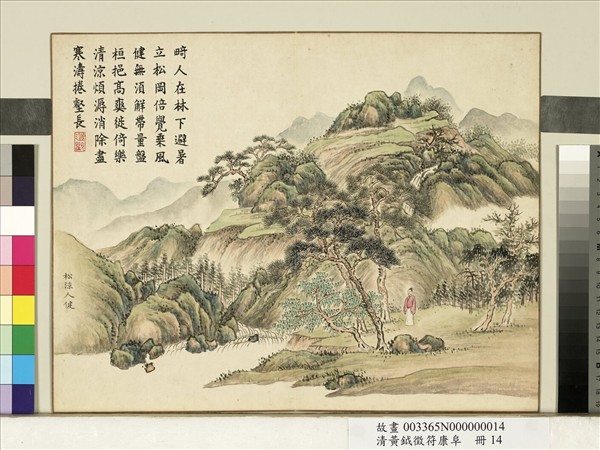 時人在林下避暑
立松岡倍覺乘風
健無須解帶量盤
桓挹高爽徙倚樂
清涼煩溽消除盡
寒濤捲壑長
松涼人健
故畫 003365N000000014
清黃鉞徵符康阜 冊 14